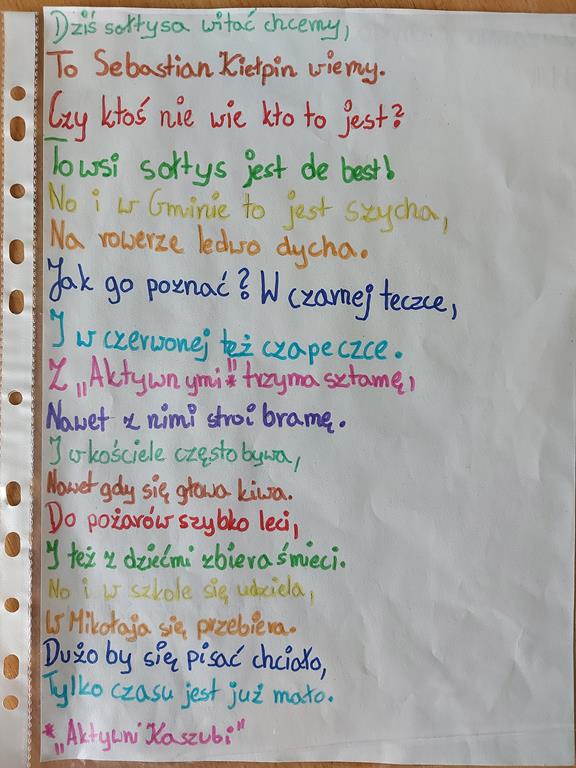 Dziś sołtysa witać chcemy,
To Sebastian Kiełpin wiemy.
Czy ktoś nie wie kto to jest?
To wsi sołtys jest de best!
No i w Gminie to jest szycha,
Na rowerze ledwo dycha.
Jak go poznać? W czarnej teczce,
I w czerwonej też czapeczce.
Z „Aktywnymi"* trzyma sztamę,
Nawet z nimi stroi bramę.
I w kościele często bywa,
Nawet gdy się głowa kiwa.
Do pożarów szybko leci,
I też z dziećmi zbiera śmieci.
No i w szkole się udziela,
W Mikołaja się przebiera.
Dużo by się pisać chciało,
Tylko czasu jest już mało.
*„Aktywni Kaszubi"